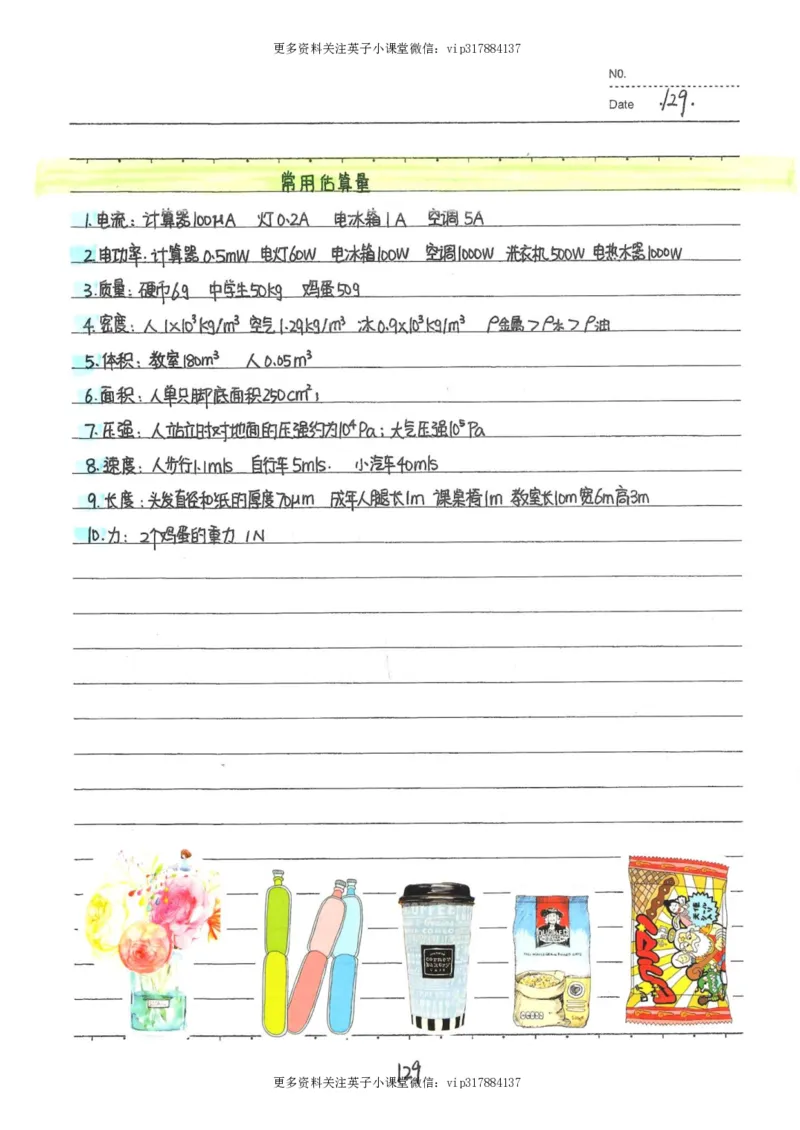 更多资料关注英子小课堂微信：vip317884137
NO.
Date /29.
常用估算量
1.电流：计算器100μA 灯0.2A 电冰箱1A 空调5A
2.电功率：计算器0.5mW 电灯60W 电冰箱100W 空调1000W 洗衣机500W 电热水器1000W
3.质量：硬币6g 中学生50kg 鸡蛋50g
4.密度：人1×10³kg/m³ 空气1.29kg/m³ 冰0.9×10³kg/m³ ρ金属＞ρ水＞ρ油
5.体积：教室180m³ 人0.05m³
6.面积：人单只脚底面积250cm²；
7.压强：人站立时对地面的压强约为10⁴Pa；大气压强10⁵Pa
8.速度：人步行1.1m/s 自行车5m/s. 小汽车40m/s
9.长度：头发直径和纸的厚度70μm 成年人腿长1m 课桌椅1m 教室长10m宽6m高3m
10.力：2个鸡蛋的重力 1N
COFFEE
corner
bakery
CAFE
QUAKER
ビックリマン
129
更多资料关注英子小课堂微信：vip317884137